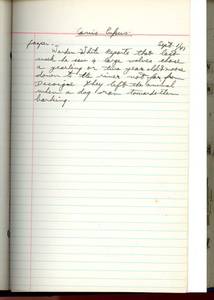 Canis lupus
Jasper - Sept 1/43
Warden White reports that last
week he saw 2 large wolves chase
a yearling or two year old moose
down to the river not far from
Decoigne. They left the animal
when a dog ran towards them
barking.